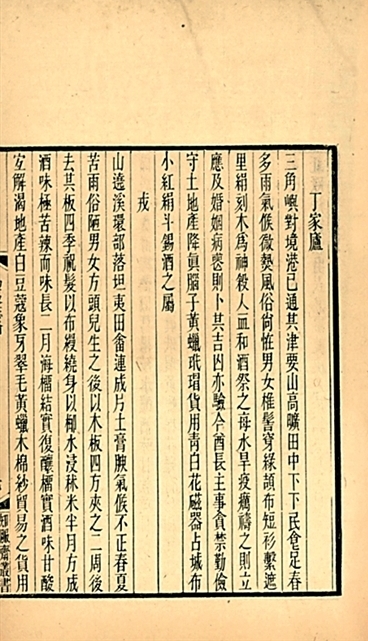 丁家廬
三角嶼對境港已通其津要山高曠田中下下民食足春
多雨氣候微熱風俗尚怪男女椎髻穿綠頡布短衫繫遮
里絹刻木為神殺人血和酒祭之每水旱疫癘禱之則立
應及婚姻病喪則卜其吉凶亦驗今酋長主事貪禁勤儉
守土地產降眞腦子黃蠟玳瑁貨用青白花磁器占城布
小紅絹斗錫酒之屬
戎
山遶溪環部落坦夷田畬連成片土膏腴氣候不正春夏
苦雨俗陋男女方頭兒生之後以木板四方夾之二周後
去其板四季祝髮以布縵繞身以椰水浸秫米半月方成
酒味極苦辣而味長二月海榴結實復釀榴實酒味甘酸
宜解渴地產白豆蔻象牙翠毛黃蠟木棉紗貿易之貨用
知服齋叢書